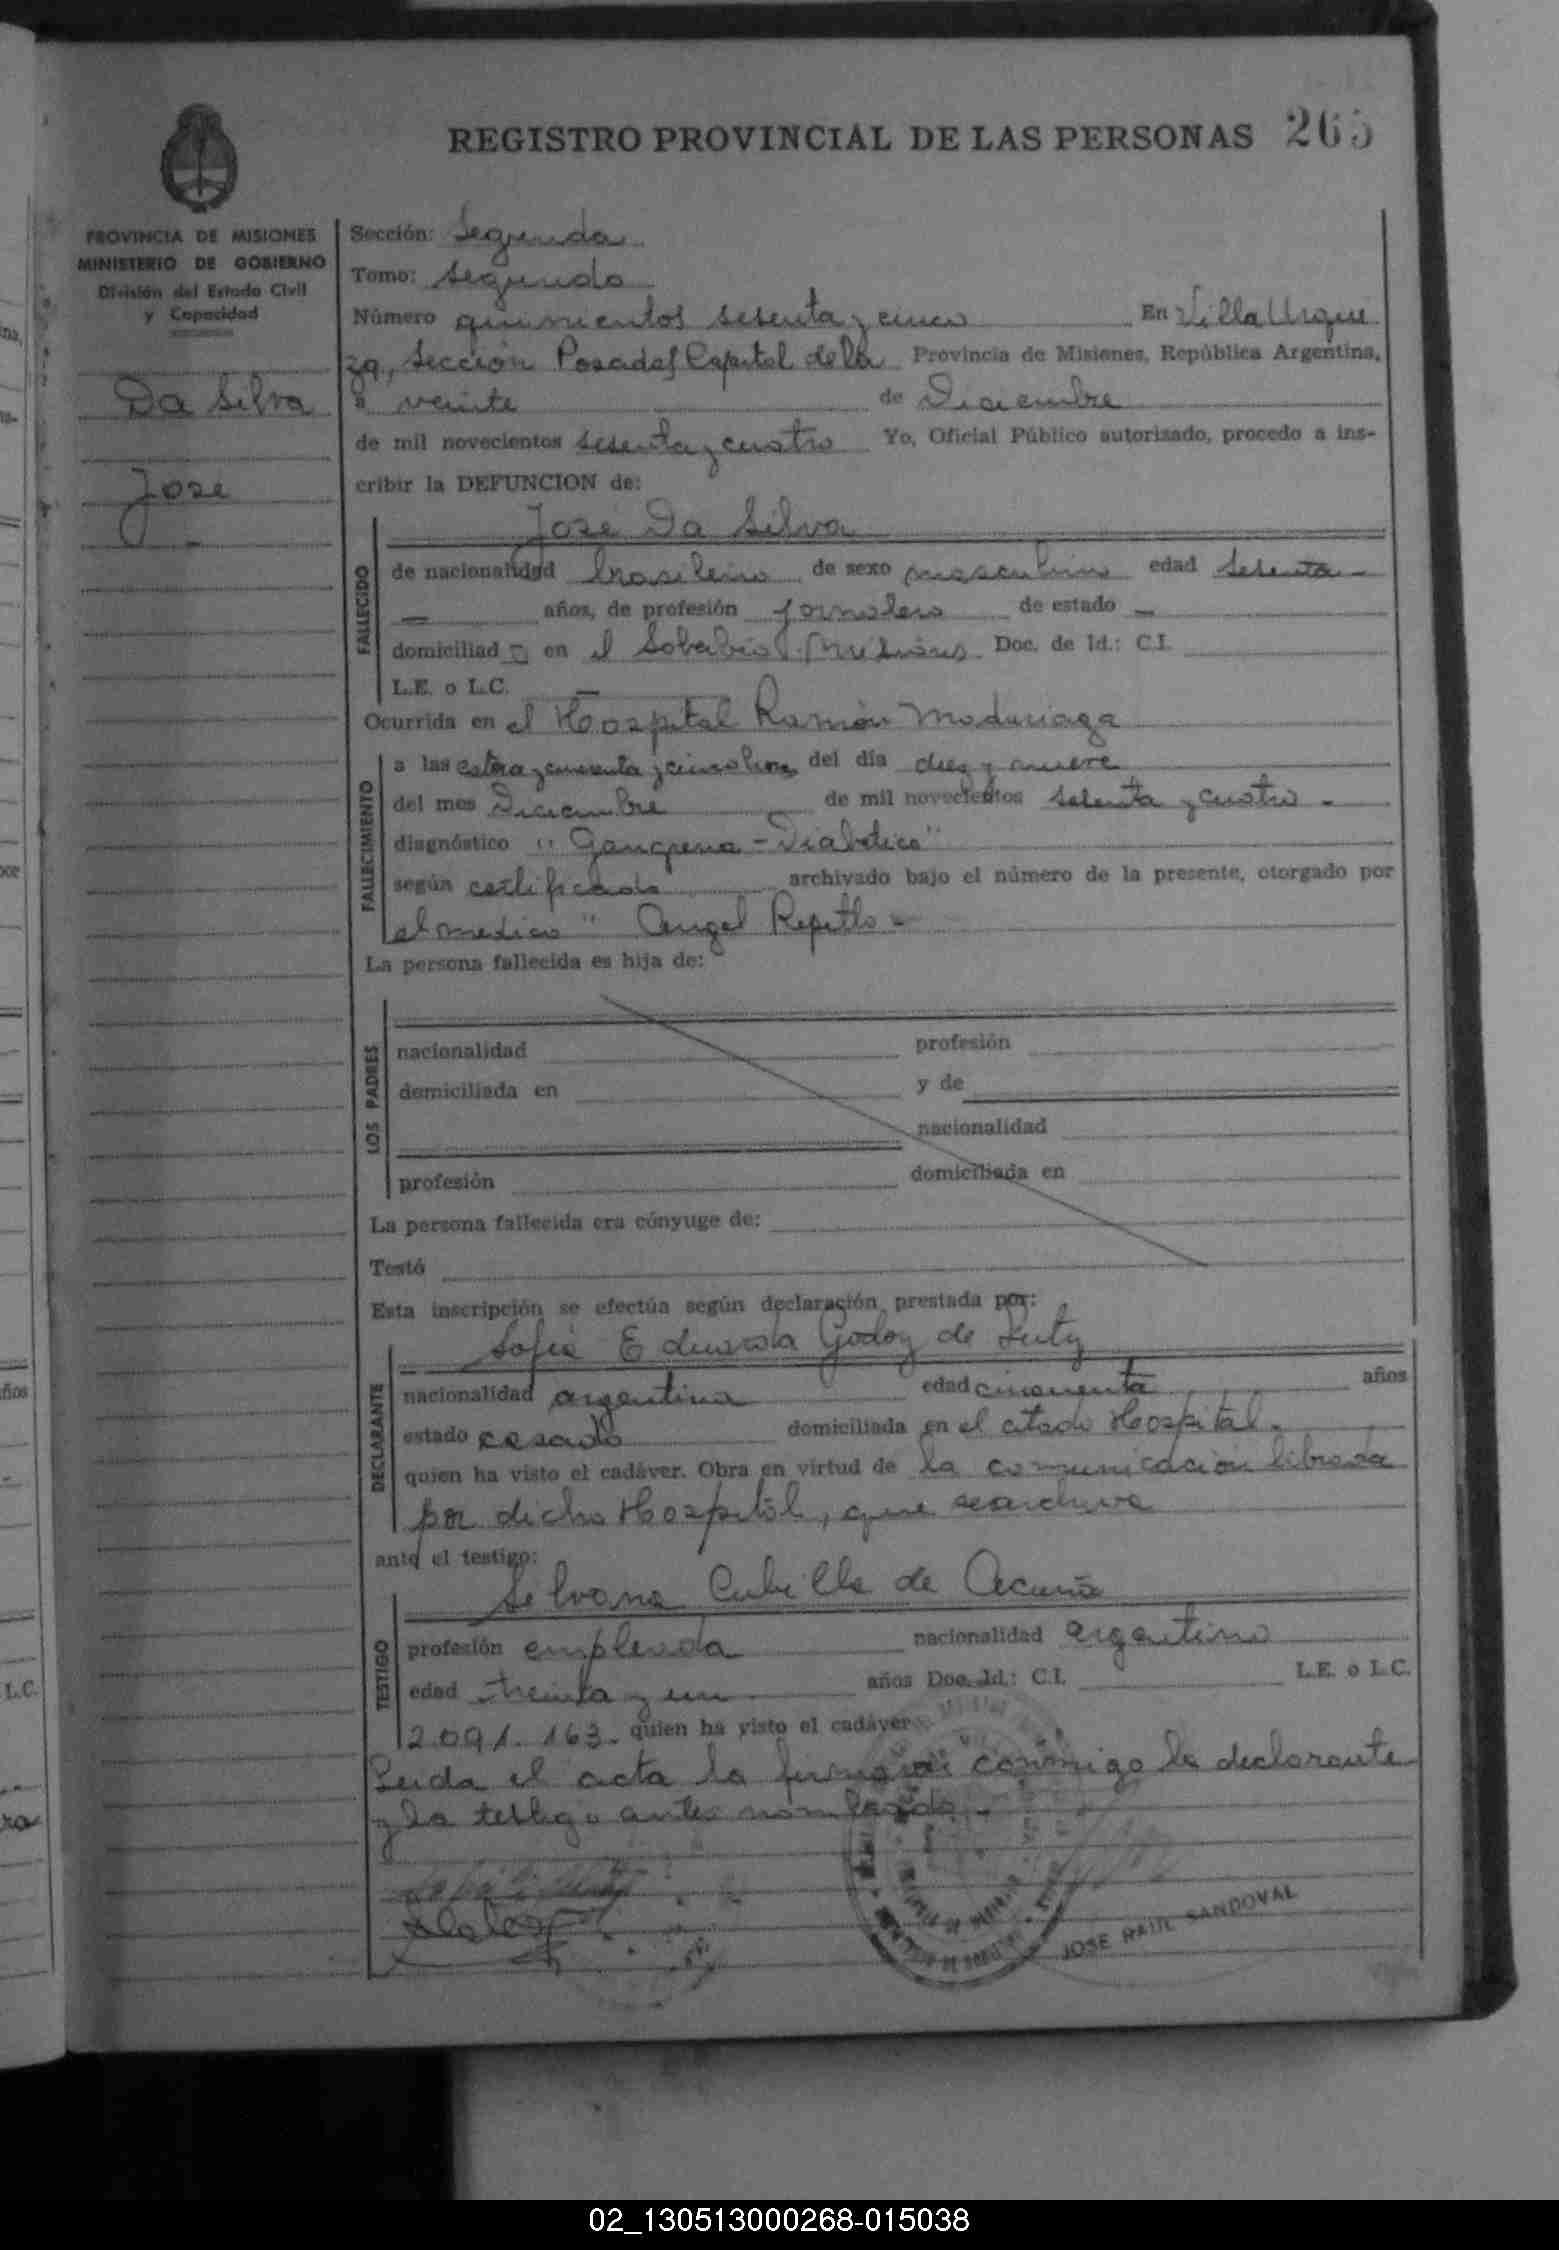 REGISTRO PROVINCIAL DE LAS PERSONAS 265
PROVINCIA DE MISIONES
MINISTERIO DE GOBIERNO
División del Estado Civil
y Capacidad
Da Silva
José
Sección: Segunda
Tomo: Segundo
Número quinientos sesenta y cinco En Villa Urqui
za, Sección Posadas Capital de la Provincia de Misiones, República Argentina,
a veinte de Diciembre
de mil novecientos sesenta y cuatro Yo, Oficial Público autorizado, procedo a ins-
cribir la DEFUNCION de:
José Da Silva
FALLECIDO
de nacionalidad brasileino de sexo masculino edad
años, de profesión jornalero de estado —
domiciliad o en el Soberbio Misiones Doc. de Id.: C.I.
L.E. o L.C. —
Ocurrida en el Hospital Ramón Madariaga
FALLECIMIENTO
a las y cincuenta y cinco horas del día diez y nueve
del mes Diciembre de mil novecientos sesenta y cuatro -
diagnóstico "Gangrena - Diabética"
según certificado archivado bajo el número de la presente, otorgado por
el medico " Angel Repetto -
La persona fallecida es hija de:
LOS PADRES
nacionalidad profesión
domiciliada en y de
nacionalidad
profesión domiciliada en
La persona fallecida era cónyuge de:
Testó
Esta inscripción se efectúa según declaración prestada por:
Sofia Eduarda Godoy de
DECLARANTE
nacionalidad argentina edad cincuenta años
estado casada domiciliada en el citado Hospital -
quien ha visto el cadáver. Obra en virtud de la comunicación librada
por dicho Hospital, que se archiva
ante el testigo:
Silvana Cubilla de Acuña
TESTIGO
profesión empleada nacionalidad argentina
edad treinta y un años Doc. Id.: C.I. L.E. o L.C.
2.091.163. quien ha visto el cadáver
Leida el acta la firman conmigo la declarante
y la testigo antes nombrada -
JOSE RAUL SANDOVAL
02_130513000268-015038